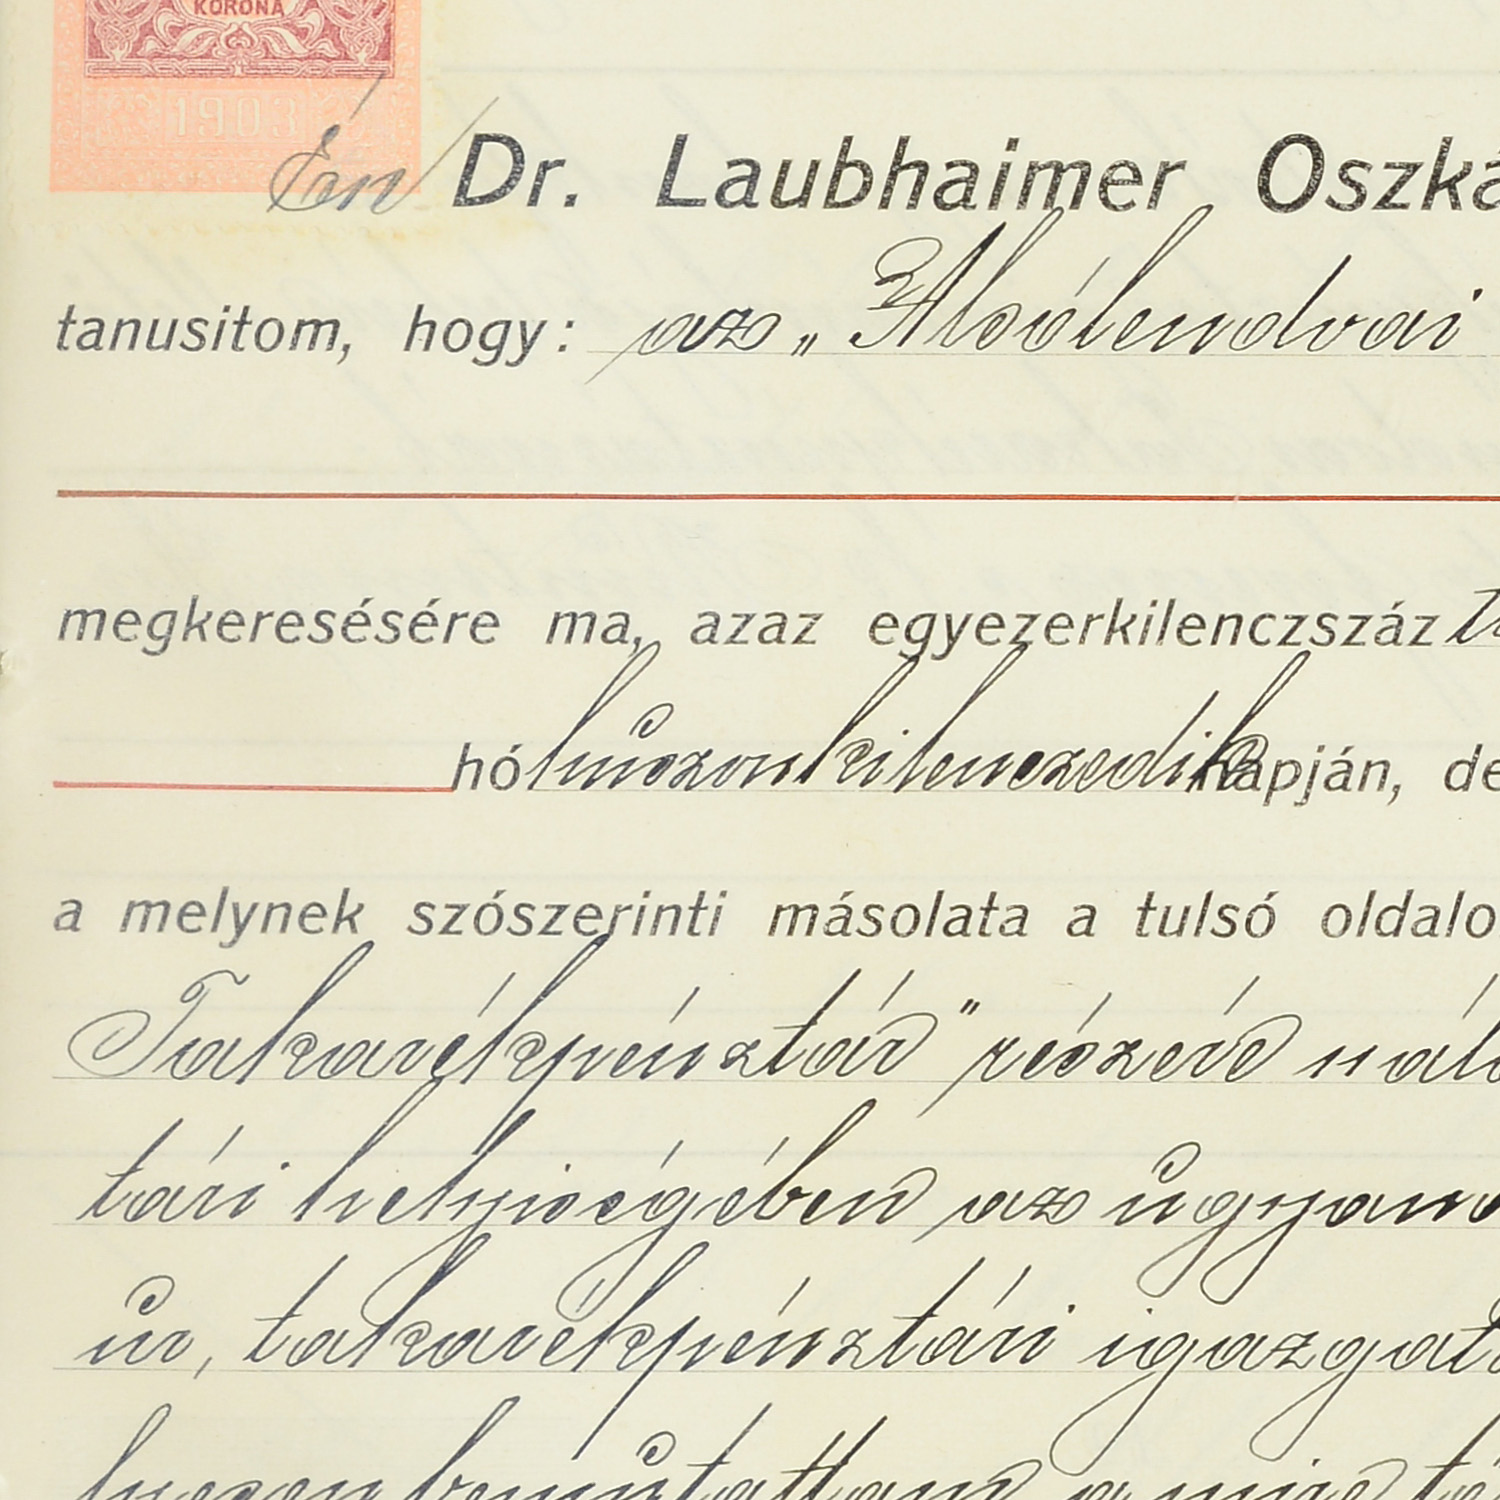 KORONA
1903
Én Dr. Laubhaimer Oszká
tanusitom, hogy: az „Alsólendvai
megkeresésére ma, azaz egyezerkilenczszáz
hó huszonkilenczedik napján, de
a melynek szószerinti másolata a tulsó oldalo
Takarékpénztár" részére nál
tári helyiségében az ugyan
úr, takarékpénztári igazgat
bemutattam, a mire